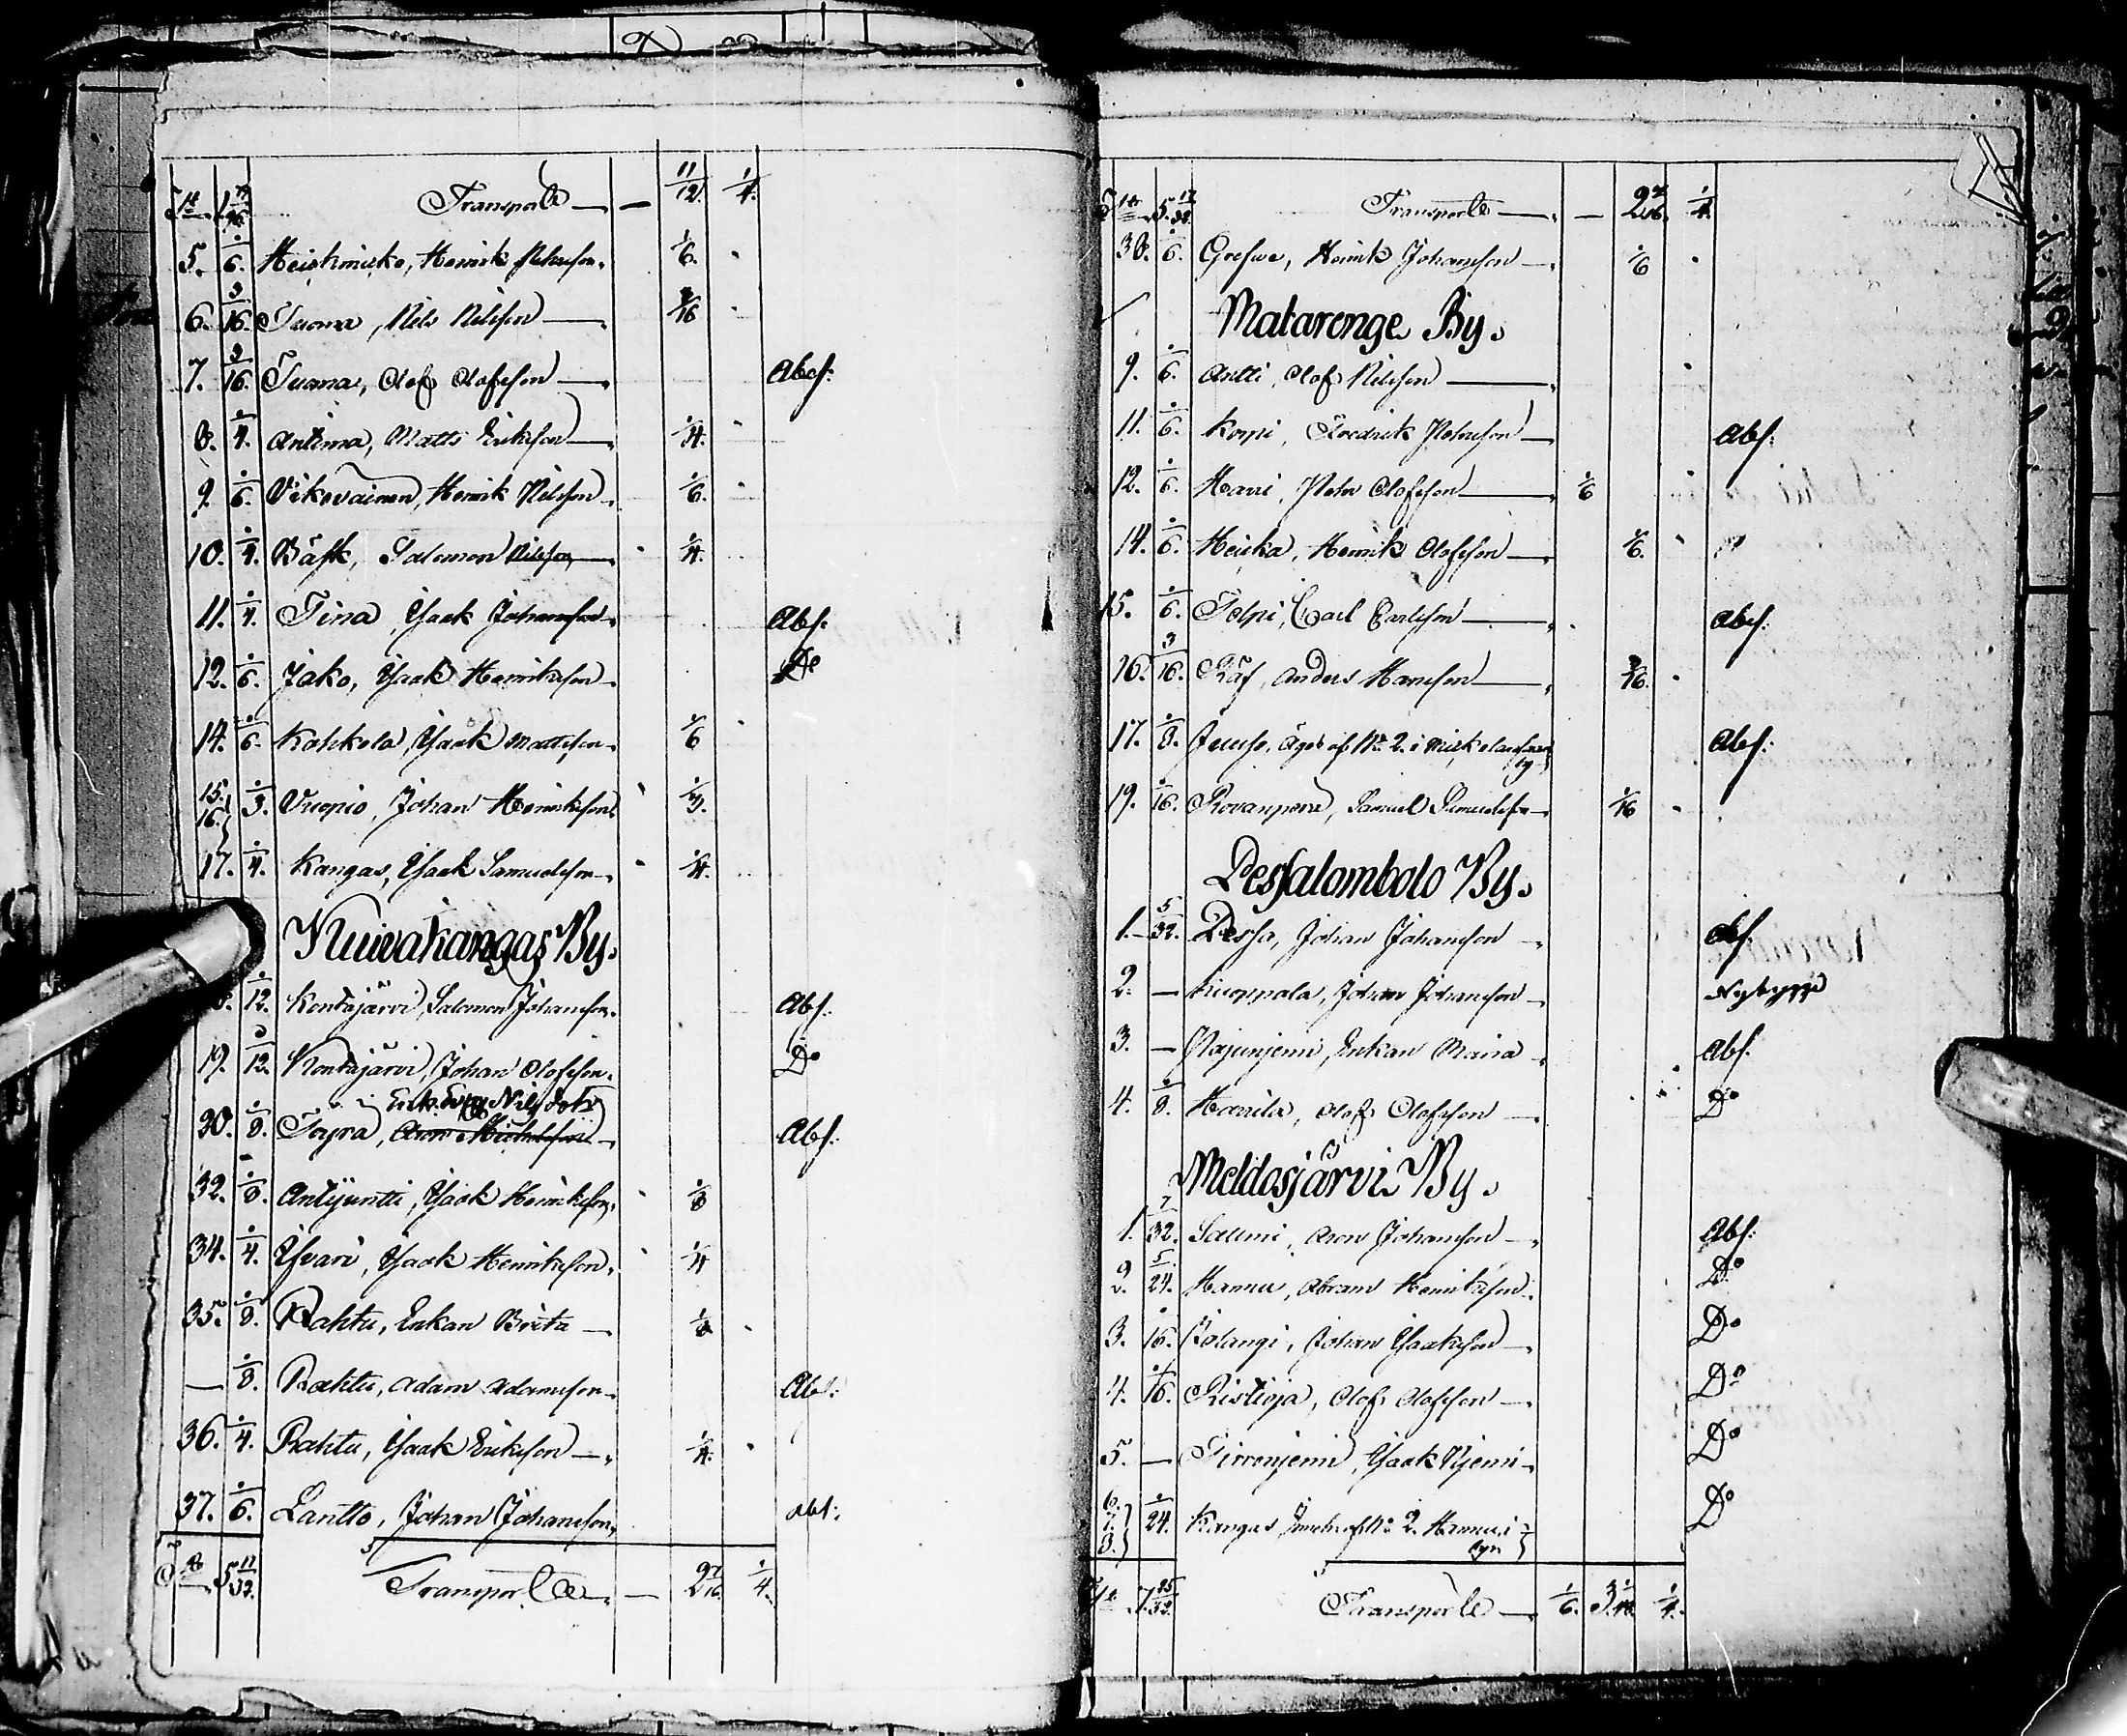 Transporte — 11/12. 1/4.
5. 1/6. Henrik 1/6.
6. 3/16. Tuoma, Nils Nilsson — 3/16
7. 3/16. Tuoma, Olof Olofsson — Abs:
8. 1/4. Antima, Matts Eriksson — 1/4.
9. 1/6. Vikevainen, Henrik Nilsson 1/6.
10. 1/4. Bäsk, Salomon Nilsson 1/4.
11. 1/4. Tina, Isaak Johansson Abs.
12. 1/6. Jako, Isaak Henriksson Do
14. 1/6. Kohkola, Isaak Mattsson 1/6
15. 16. 1/3. Vuopio, Johan Henriksson 1/3.
17. 1/4. Kangas, Isaak Samuelsson 1/4.
Kuivakangas By.
1/12. Kontajärvi, Salomon Johansson. Abs.
19. 1/12. Kontajärvi, Johan Olofsson. Do
Enk. Eva Nilsdotr
30. 1/8. Töyrä, Aron Michelsson Abs.
32. 1/8. Antijuntti, Isaak Henriksson. 1/8
34. 1/4. Ysvari, Isaak Henriksson. 1/4
35. 1/8. Rahtu, Enkan Brita — 1/8
— 1/8. Rahtu, Adam Adamsson Abs:
36. 1/4. Rahtu, Isaak Eriksson — 1/4.
37. 1/6. Lantto, Johan Johansson, Abs:
5 17/32. Transporte — 2 7/16. 1/4.
5 17/32. Transporte — 2 7/16. 1/4.
38. 1/6. Grefwe, Henrik Johansson — 1/6
Matarenge By.
9. 1/6. Antti, Olof Nilsson —
11. 1/6. Korpi, Fredrik Petersson — Abs:
12. 1/6. Harri, Peter Olofsson — 1/6
14. 1/6. Heicka, Henrik Olofsson — 1/6.
15. 1/6. Tolpi, Carl Carlsson — Abs:
16. 3/16. Räf, Anders Hansson — 3/16.
17. 1/8. Juuso, äges af No 2. i by Abs:
19. 1/16. Rovanpera, Samuel Samuelsson 1/16
Pessalombolo By.
1. 5/32. Pessa, Johan Johansson — Abs
2. — Kuoppala, Johan Johansson — Nybygge
3. — Pajunjemi, Enkan Maria Abs.
4. 1/8. Hannila, Olof Olofsson — Do
Meldosjärvi By.
1. 7/32. Saumi, Aron Johansson — Abs:
2. 5/24. Hannu, Abram Henriksson. Do
3. 1/16. Palangi, Johan Isaaksson — Do
4. 1/16. Ristioja, Olof Olofsson — Do
5. — Tirronjemi, Isaak Njemi Do
6. 7. 8. 1/24. Kangas af No 2. Hannu i byn Do
7 25/32. Transporte — 1/6. 1/4.